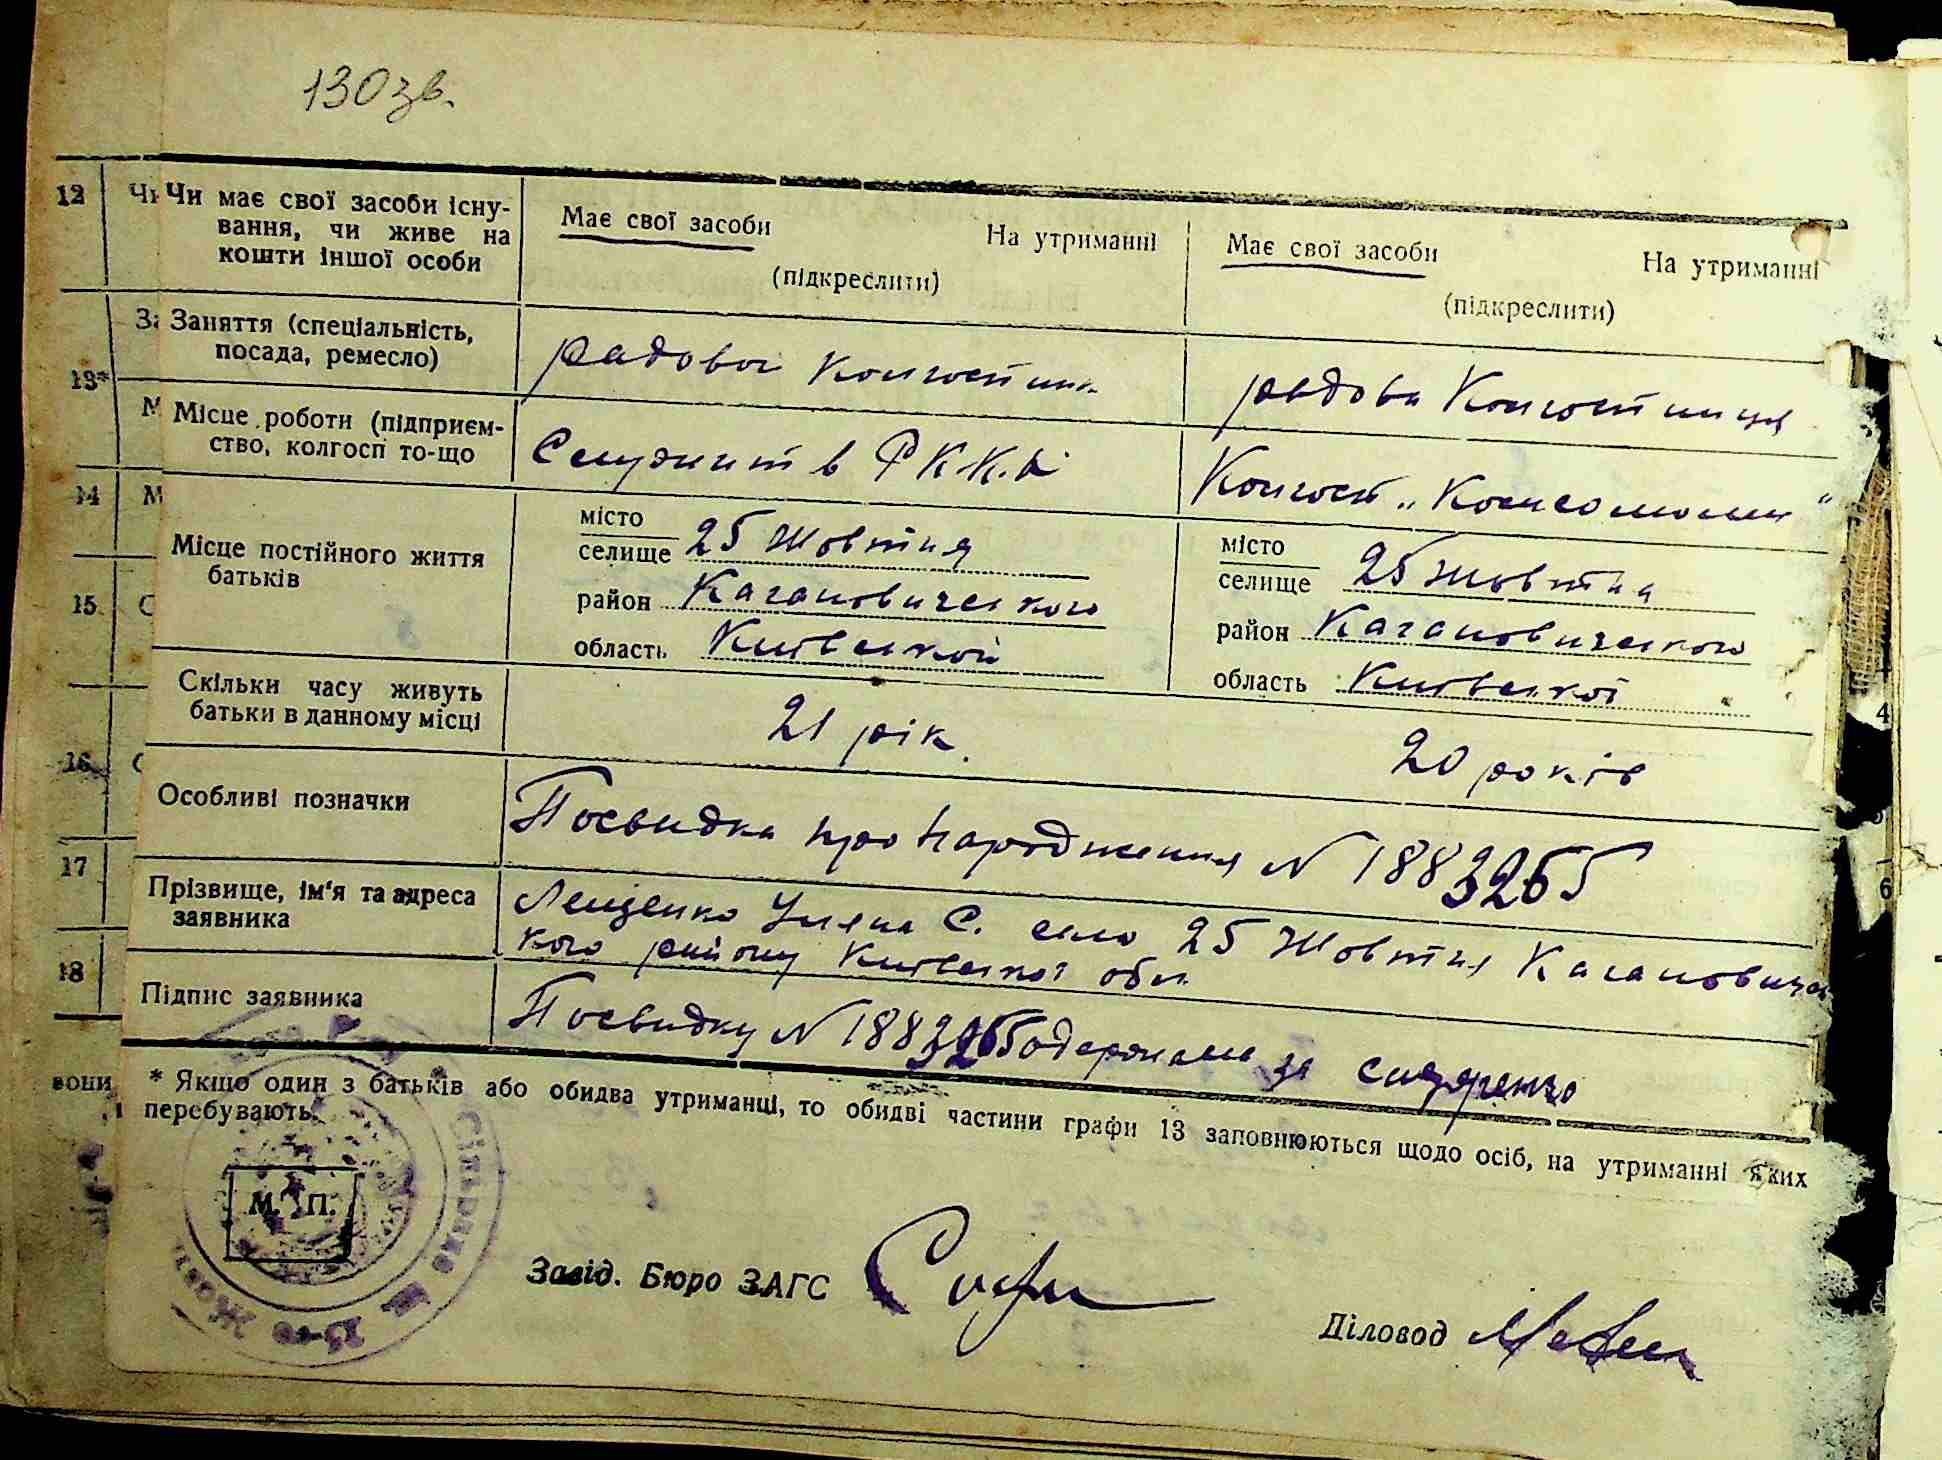 130зв.
12
Чи має свої засоби існу-
вання, чи живе на
кошти іншої особи
Має свої засоби На утриманні
(підкреслити)
Має свої засоби На утриманні
(підкреслити)
13*
Заняття (спеціальність,
посада, ремесло)
рядовой колгоспник
рядова колгоспниця
Місце роботи (підприєм-
ство, колгосп то-що
Служит в РККА
Колгосп „Комсомолець"
14
Місце постійного життя
батьків
місто
селище 25 Жовтня
район Кагановического
область Київської
місто
селище 25 Жовтня
район Кагановического
область Київської
15
Скільки часу живуть
батьки в данному місці
21 рік.
20 років
16
Особливі позначки
Посвидка про народження N 1883265
17
Прізвище, ім'я та адреса
заявника
Лещенко Уляна С. село 25 Жовтня Кагановичес
кого району Київської обл
18
Підпис заявника
Посвидку N 1883265 одержала за
* Якщо один з батьків або обидва утриманці, то обидві частини графи 13 заповнюються щодо осіб, на утриманні яких
вони перебувають.
М. П.
25-го
Завід. Бюро ЗАГС
Діловод
4
6